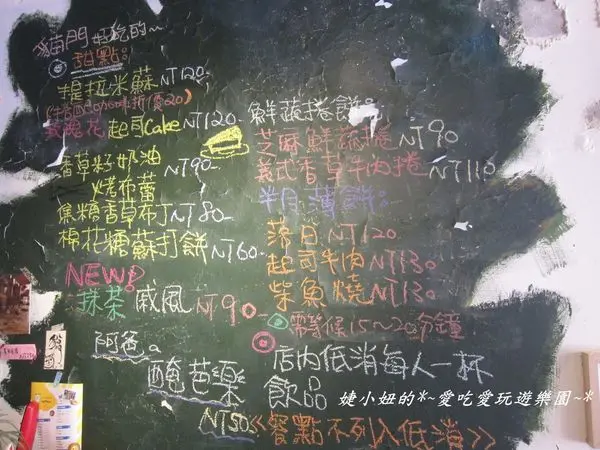 貓門好吃的~
◎甜點:
提拉米蘇NT120-
玫瑰花起司Cake NT120-
香草籽奶油
烤布蕾 NT90-
焦糖香草布丁NT80-
棉花糖蘇打餅NT60-
NEW!
抹茶戚風NT90-
阿爸a
醃芭樂
NT50
鮮蔬捲餅:
芝麻鮮蔬捲NT90
義式香草牛肉捲NT110
半月薄餅:
落日NT120
起司牛肉NT130
柴魚燒NT130
◎需等候15~20分鐘
◎店內低消每人一杯
飲品
《餐點不列入低消》
婕小妞的*~愛吃愛玩遊樂園~*